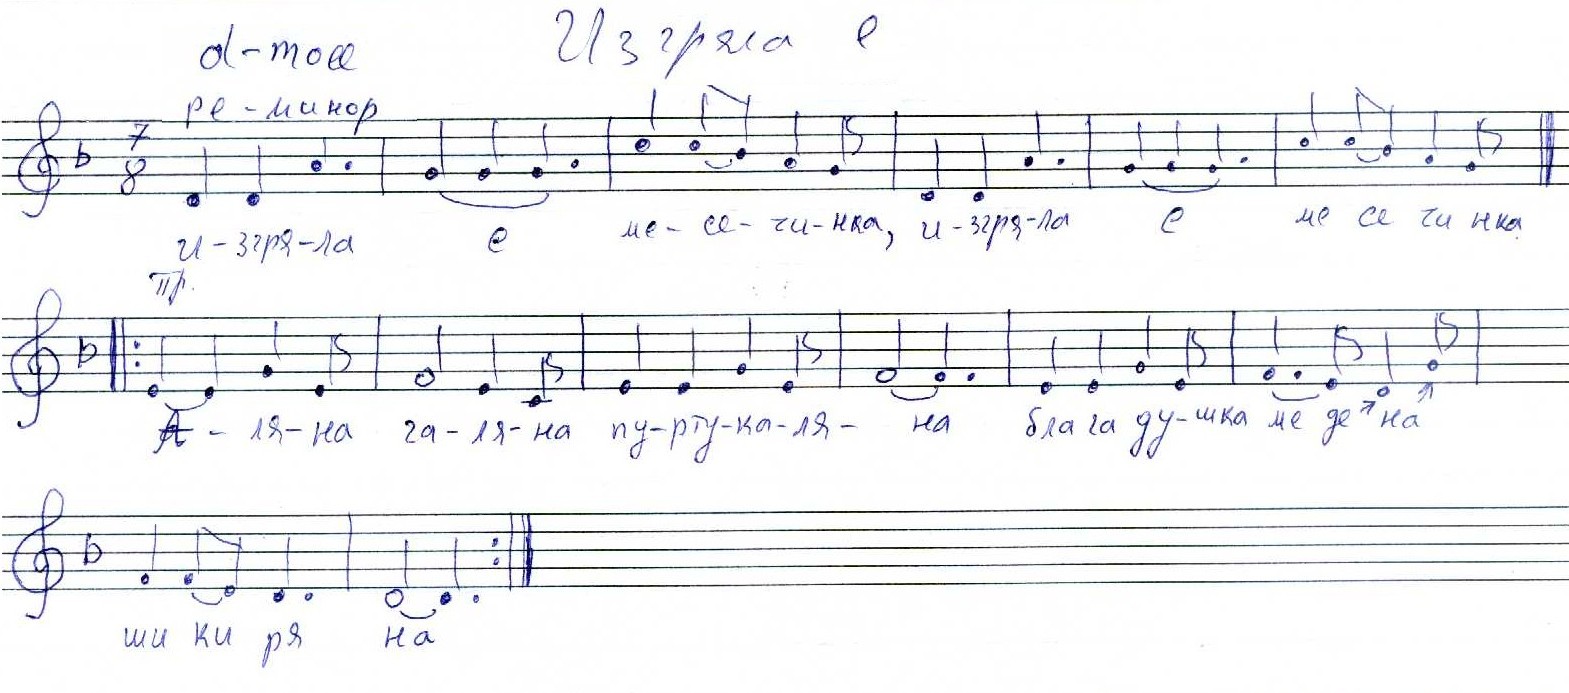 Изгряла е
d-moll
ре-минор
7
8
и-згря-ла е ме-се-чи-нка, и-згря-ла е ме се чи нка
Пр.
А - ля-на га-ля-на пу-рту-ка-ля- на бла га ду-шка ме де на
ши ки ря на